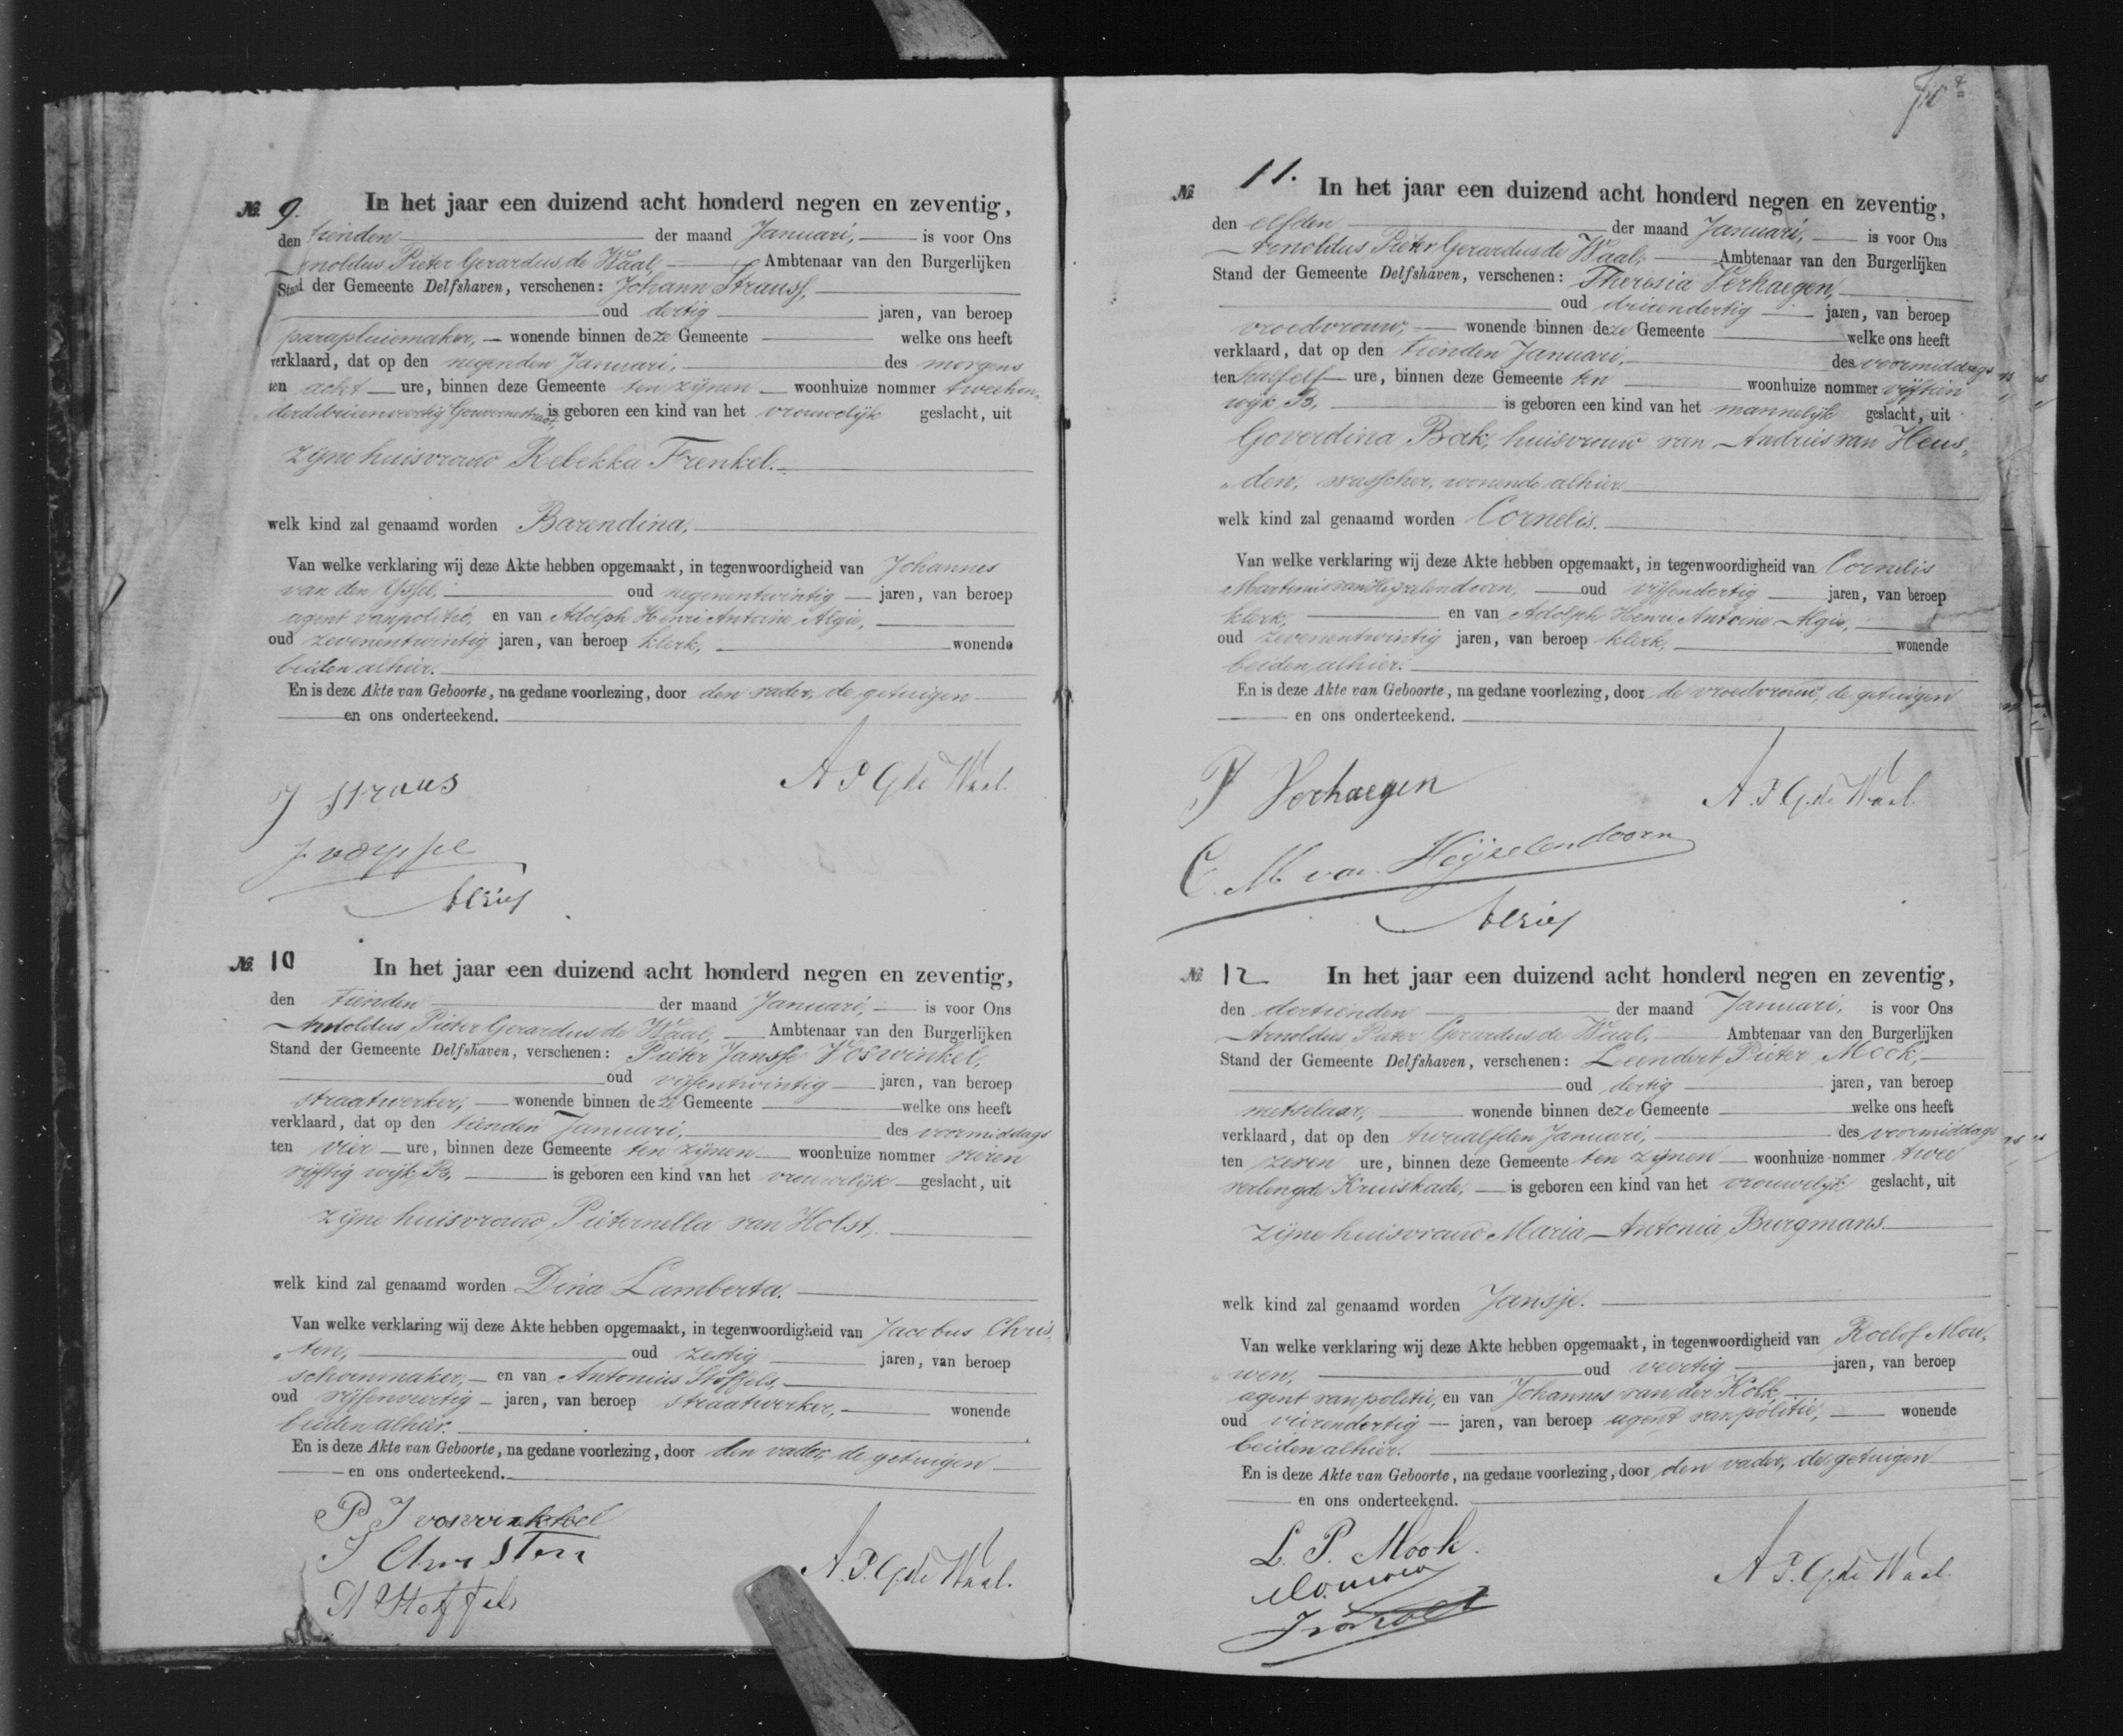 № 9. In het jaar een duizend acht honderd negen en zeventig,
den tienden der maand Januari, is voor Ons
Arnoldus Pieter Gerardus de Waal, Ambtenaar van den Burgerlijken
Stand der Gemeente Delfshaven, verschenen: Johann Strauss,
oud dertig jaren, van beroep
parapluiemaker, wonende binnen deze Gemeente welke ons heeft
verklaard, dat op den negenden Januari, des morgens
ten acht ure, binnen deze Gemeente ten zijnen woonhuize nommer tweehon-
derddrieenveertig Gouvernestraat, is geboren een kind van het vrouwelijk geslacht, uit
zijne huisvrouw Rebekka Frenkel.
welk kind zal genaamd worden Barendina,
Van welke verklaring wij deze Akte hebben opgemaakt, in tegenwoordigheid van Johannes
van den Yssel, oud negenentwintig jaren, van beroep
agent van politie, en van Adolph Henri Antoine Algie,
oud zevenentwintig jaren, van beroep klerk, wonende
beiden alhier.
En is deze Akte van Geboorte, na gedane voorlezing, door den vader, de getuigen
en ons onderteekend.
J Straus A P G de Waal.
№ 10 In het jaar een duizend acht honderd negen en zeventig,
den tienden der maand Januari, is voor Ons
Arnoldus Pieter Gerardus de Waal, Ambtenaar van den Burgerlijken
Stand der Gemeente Delfshaven, verschenen: Pieter Jansse Voswinkel,
oud vijfentwintig jaren, van beroep
straatwerker, wonende binnen deze Gemeente welke ons heeft
verklaard, dat op den tienden Januari, des voormiddags
ten vier ure, binnen deze Gemeente ten zijnen woonhuize nommer vieren
vijftig wijk B, is geboren een kind van het vrouwelijk geslacht, uit
zijne huisvrouw Pieternella van Holst,
welk kind zal genaamd worden Dina Lamberta.
Van welke verklaring wij deze Akte hebben opgemaakt, in tegenwoordigheid van Jacobus Chris-
ten, oud zestig jaren, van beroep
schoenmaker, en van Antonius Stoffels,
oud vijfenveertig jaren, van beroep straatwerker, wonende
beiden alhier.
En is deze Akte van Geboorte, na gedane voorlezing, door den vader, de getuigen
en ons onderteekend.
P J voswinkel
J Christen A. P. G. de Waal.
A Stoffels
№ 11. In het jaar een duizend acht honderd negen en zeventig,
den elfden der maand Januari, is voor Ons
Arnoldus Pieter Gerardus de Waal, Ambtenaar van den Burgerlijken
Stand der Gemeente Delfshaven, verschenen: Theresia Verhaegen,
oud drieendertig jaren, van beroep
vroedvrouw, wonende binnen deze Gemeente welke ons heeft
verklaard, dat op den tienden Januari, des voormiddags
ten half elf ure, binnen deze Gemeente ten woonhuize nommer vijftien
wijk B, is geboren een kind van het mannelijk geslacht, uit
Goverdina Bak, huisvrouw van Andries van Heus-
den, wasscher, wonende alhier
welk kind zal genaamd worden Cornelis.
Van welke verklaring wij deze Akte hebben opgemaakt, in tegenwoordigheid van Cornelis
Martinus van Heyzelendoorn, oud vijfendertig jaren, van beroep
klerk, en van Adolph Henri Antoine Algie,
oud zevenentwintig jaren, van beroep klerk, wonende
beiden alhier.
En is deze Akte van Geboorte, na gedane voorlezing, door de vroedvrouw, de getuigen
en ons onderteekend.
T Verhaegen A. P. G. de Waal.
C. M van Heijzelendoorn
№ 12 In het jaar een duizend acht honderd negen en zeventig,
den dertienden der maand Januari, is voor Ons
Arnoldus Pieter Gerardus de Waal, Ambtenaar van den Burgerlijken
Stand der Gemeente Delfshaven, verschenen: Leendert Pieter Mook,
oud dertig jaren, van beroep
metselaar, wonende binnen deze Gemeente welke ons heeft
verklaard, dat op den twaalfden Januari, des voormiddags
ten zeven ure, binnen deze Gemeente ten zijnen woonhuize nommer twee
verlengde Kruiskade, is geboren een kind van het vrouwelijk geslacht, uit
zijne huisvrouw Maria Antonia Burgmans.
welk kind zal genaamd worden Jansje.
Van welke verklaring wij deze Akte hebben opgemaakt, in tegenwoordigheid van Roelof Mou-
wen, oud veertig jaren, van beroep
agent van politie, en van Johannes van der Kolk,
oud vierendertig jaren, van beroep agent van politie, wonende
beiden alhier.
En is deze Akte van Geboorte, na gedane voorlezing, door den vader, de getuigen
en ons onderteekend.
L. P. Mook.
Mouwen A P. G. de Waal.